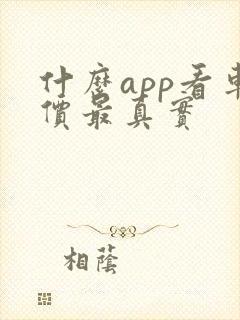 什麼app看車
價最真實
相蔭